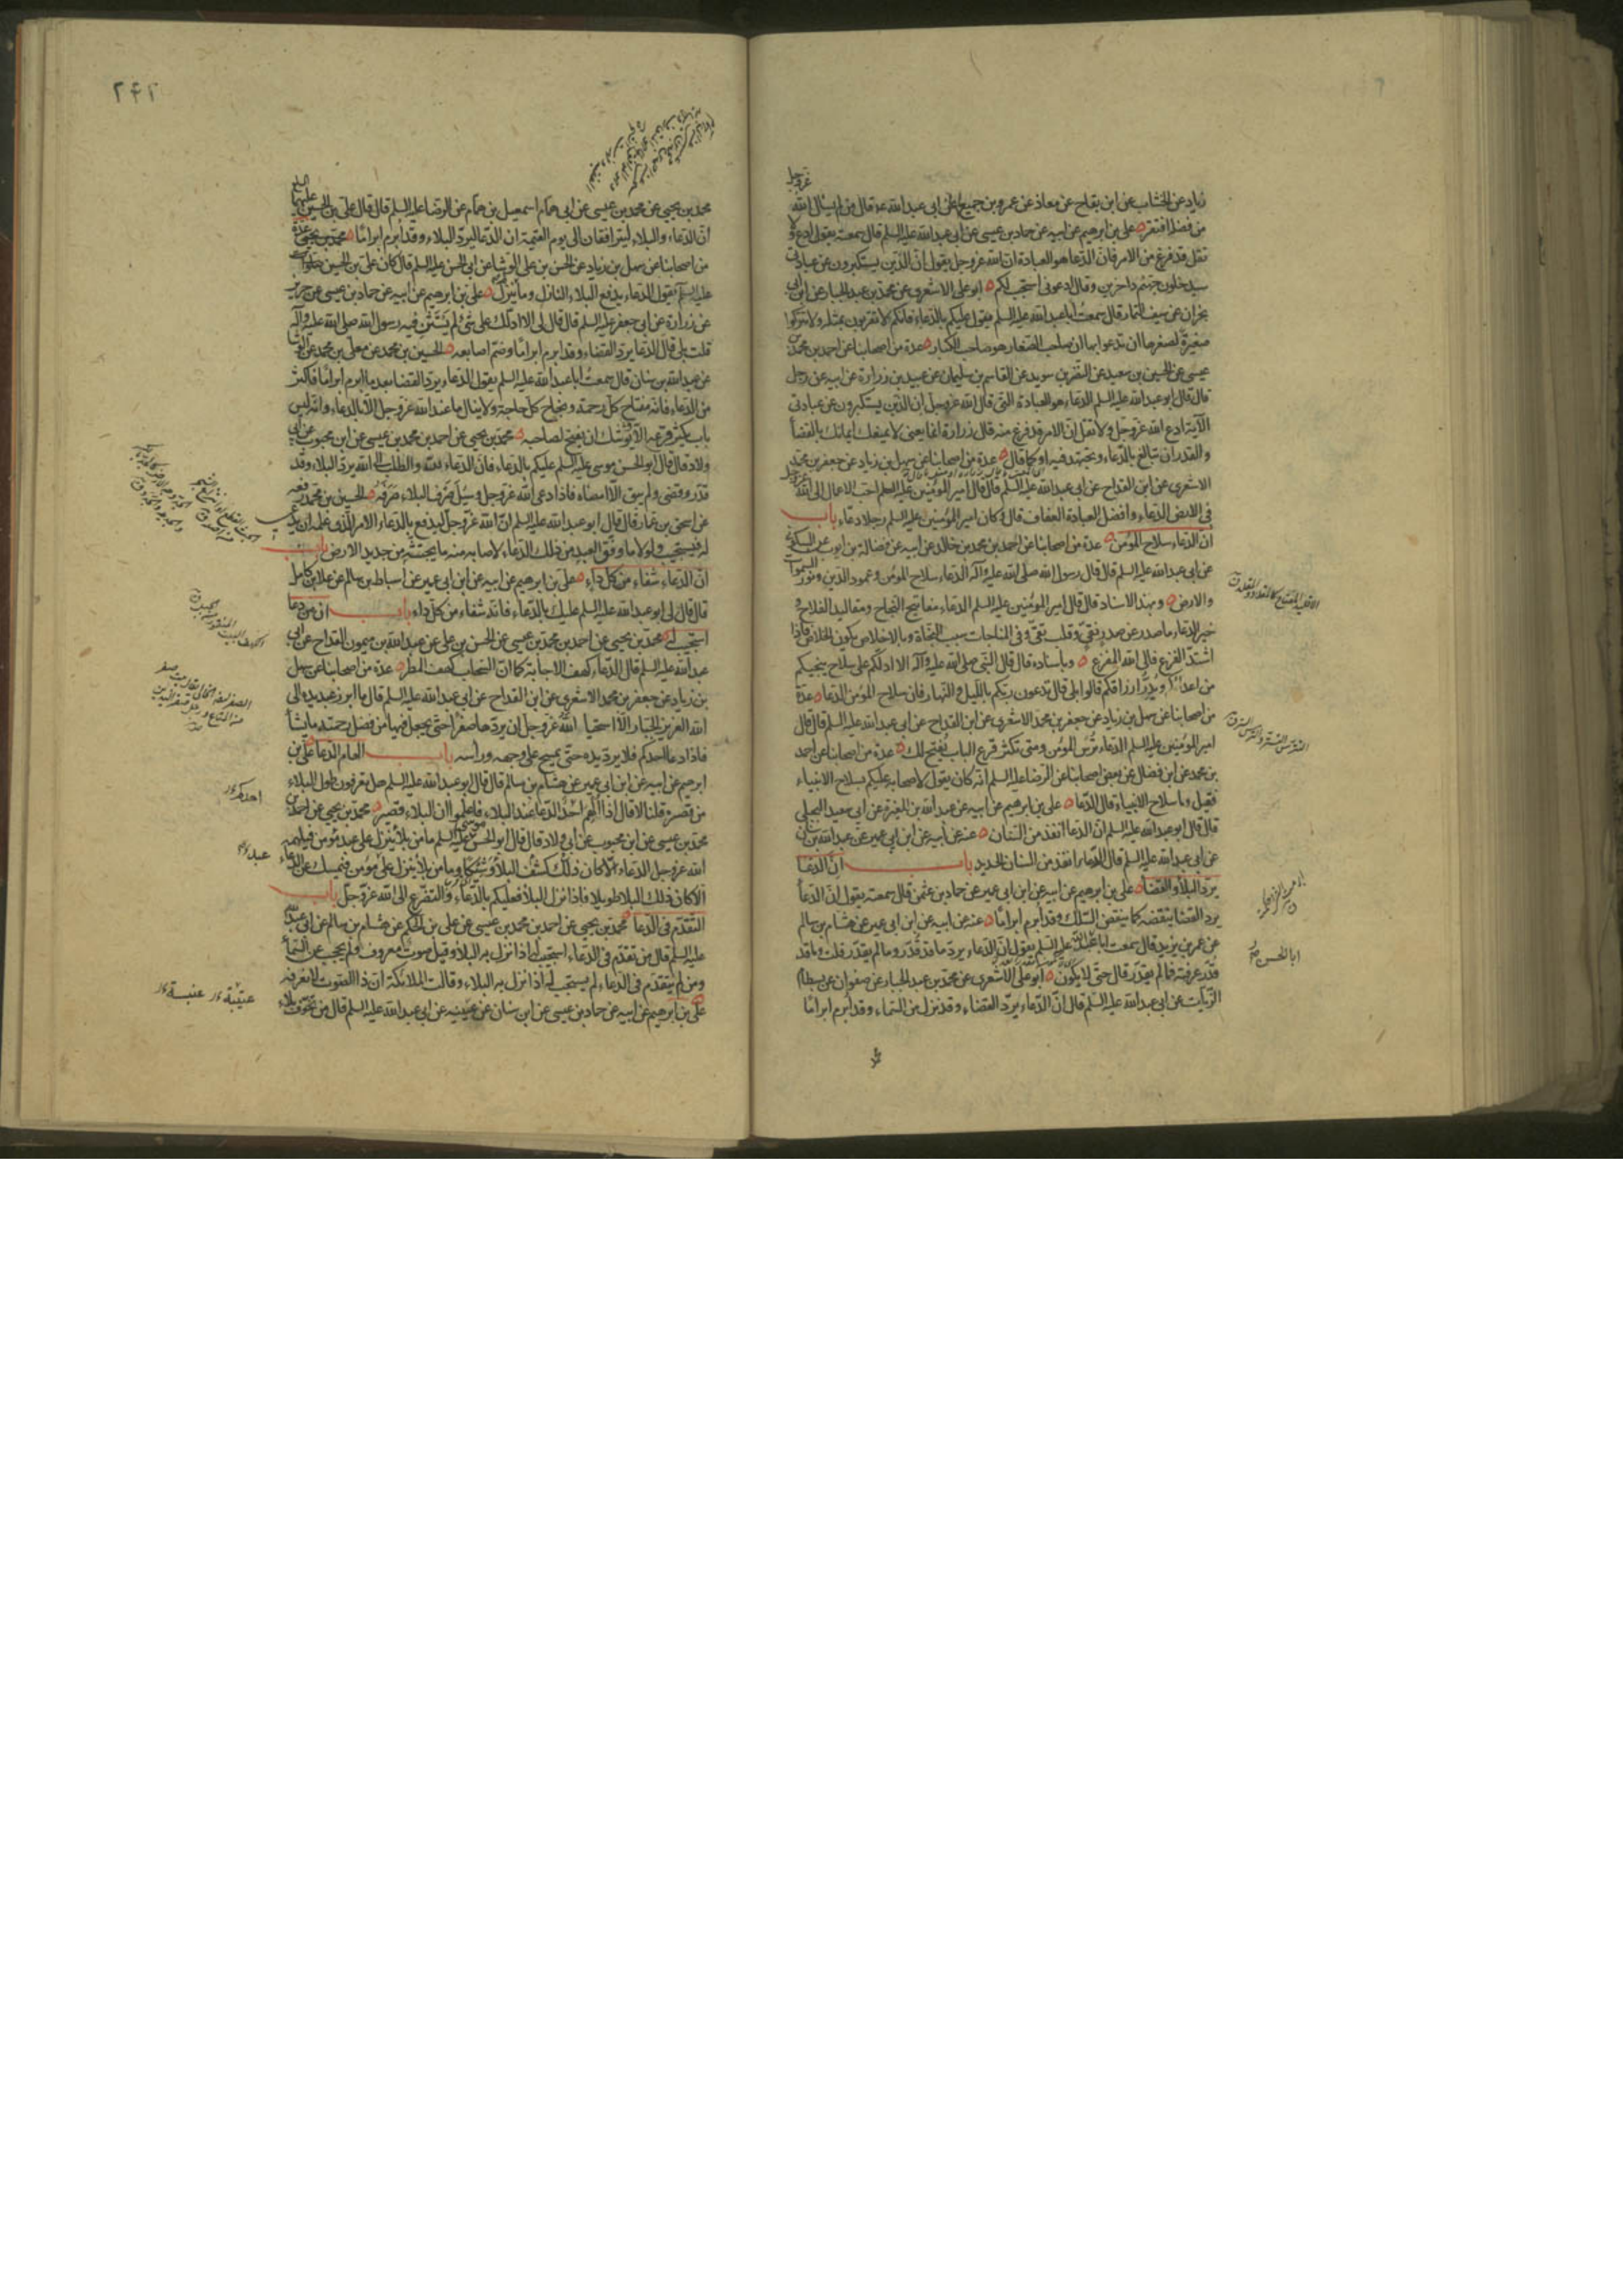 زياد عن الخشاب عن ابن بقاح عن معاذ عن عمرو بن جميع عن ابى عبد الله عه قال من لم يسأل الله عز وجل
من فضله افتقر علي بن ابرهيم عن ابيه عن حماد بن عيسى عن ابى عبد الله عليه السلم قال سمعته يقول ادع ولا
تقل قد فرغ من الامر فان الدعا هو العبادة ان الله عز وجل يقول ان الذين يستكبرون عن عبادتى
سيدخلون جهنم داخرين وقال ادعونى استجب لكم ابو على الاشعرى عن محمد بن عبد الجبار عن ابن ابى
نجران عن سيف التمار قال سمعت ابا عبد الله عليه السلم يقول عليكم بالدعاء فانكم لا تقربون بمثله ولا تتركوا
صغيرة لصغرها ان تدعوا بها ان صاحب الصغار هو صاحب الكبار عدة من اصحابنا عن احمد بن محمد بن
عيسى عن الحسين بن سعيد عن النضر بن سويد عن القاسم بن سليمان عن عبيد بن زرارة عن ابيه عن رجل
قال قال ابو عبد الله عليه السلم الدعاء هو العبادة التى قال الله عز وجل ان الذين يستكبرون عن عبادتى
الآية ادع الله عز وجل ولا تقل ان الامر قد فرغ منه قال زرارة انما يعنى لا يمنعك ايمانك بالقضا
والقدر ان تبالغ بالدعاء وتجتهد فيه او كما قال عدة من اصحابنا عن سهل بن زياد عن جعفر بن محمد
الاشعرى عن ابن القداح عن ابى عبد الله عليه السلم قال قال امير المؤمنين عليه السلم احب الاعمال الى الله عز وجل
فى الارض الدعاء وافضل العبادة العفاف قال وكان امير المؤمنين عليه السلم رجلا دعاء باب
ان الدعاء سلاح المؤمن عدة من اصحابنا عن احمد بن محمد بن خالد عن ابيه عن فضالة بن ايوب عن السكونى
عن ابى عبد الله عليه السلم قال قال رسول الله صلى الله عليه وآله الدعاء سلاح المؤمن وعمود الدين ونور السموات
والارض وبهذا الاسناد قال قال امير المؤمنين عليه السلم الدعاء مفاتيح النجاح ومقاليد الفلاح و
خير الدعاء ما صدر عن صدر نقى وقلب تقى وفى المناجات سبب النجاة وبالاخلاص يكون الخلاص فاذا
اشتد الفزع فالى الله المفزع وباسناده قال قال النبى صلى الله عليه وآله الا ادلكم على سلاح ينجيكم
من اعدائكم ويدر ارزاقكم قالوا بلى قال تدعون ربكم بالليل والنهار فان سلاح المؤمن الدعا عدة
من اصحابنا عن سهل بن زياد عن جعفر بن محمد الاشعرى عن ابن القداح عن ابى عبد الله عليه السلم قال قال
امير المؤمنين عليه السلم الدعاء ترس المؤمن ومتى تكثر قرع الباب يفتح لك عدة من اصحابنا عن احمد
بن محمد عن ابن فضال عن بعض اصحابنا عن الرضا عليه السلم انه كان يقول لاصحابه عليكم بسلاح الانبياء
فقيل وما سلاح الانبياء قال الدعا على بن ابرهيم عن ابيه عن عبد الله بن المغيرة عن ابى سعيد البجلى
قال قال ابو عبد الله عليه السلم ان الدعا انفذ من السنان عنه عن ابيه عن ابن ابى عمير عن عبد الله بن سنان
عن ابى عبد الله عليه السلم قال الدعاء انفذ من السنان الحديد باب ان الدعا
يرد البلا والقضا على بن ابرهيم عن ابيه عن ابن ابى عمير عن حماد بن عثمن قال سمعته يقول ان الدعا
يرد القضا ينقضه كما ينقض السلك وقد ابرم ابراما عنه عن ابيه عن ابن ابى عمير عن هشام بن سالم
عن عمر بن يزيد قال سمعت ابا عبد الله عليه السلم يقول ان الدعاء يرد ما قد قدر وما لم يقدر قلت وما قد
قدر عرفته فما لم يقدر قال حتى لا يكون ابو على الاشعرى عن محمد بن عبد الجبار عن صفوان عن بسطام
الزيات عن ابى عبد الله عليه السلم قال ان الدعاء يرد القضاء وقد نزل من السماء وقد ابرم ابراما
ابا الحسن
٢٤٢
محمد بن يحيى عن محمد بن عيسى عن ابى همام اسمعيل بن همام عن الرضا عليه السلم قال قال على بن الحسين عليهما السلم
ان الدعاء والبلاء ليترافقان الى يوم القيمة ان الدعا ليرد البلاء وقد ابرم ابراما محمد بن يحيى عدة
من اصحابنا عن سهل بن زياد عن الحسن بن على الوشا عن ابى الحسن عليه السلم قال كان على بن الحسين صلوات
عليه السلم يقول الدعاء يدفع البلاء النازل وما لم ينزل على بن ابرهيم عن ابيه عن حماد بن عيسى عن حريز
عن زرارة عن ابى جعفر عليه السلم قال قال لى الا ادلك على شئ لم يستثن فيه رسول الله صلى الله عليه وآله
قلت بلى قال الدعا يرد القضاء وقد ابرم ابراما وضم اصابعه الحسين بن محمد عن معلى بن محمد عن الوشا
عن عبد الله بن سنان قال سمعت ابا عبد الله عليه السلم يقول الدعاء يرد القضا بعد ما ابرم ابراما فاكثر
من الدعاء فانه مفتاح كل رحمة ونجاح كل حاجة ولا ينال ما عند الله عز وجل الا بالدعاء وانه ليس
باب يكثر قرعه الا يوشك ان يفتح لصاحبه محمد بن يحيى عن احمد بن محمد بن عيسى عن ابن محبوب عن ابى
ولاد قال قال ابو الحسن موسى عليه السلم عليكم بالدعاء فان الدعاء لله والطلب الى الله يرد البلاء وقد
قدر وقضى ولم يبق الا امضاه فاذا دعى الله عز وجل وسئل صرف البلاء صرفه الحسين بن محمد رفعه
عن اسحق بن عمار قال قال ابو عبد الله عليه السلم ان الله عز وجل ليدفع بالدعاء الامر الذى علمه ان يدعى
له فيستجيب ولولا ما وفق العبد من ذلك الدعاء لاصابه منه ما يجتثه من جديد الارض باب
ان الدعاء شفاء من كل داء على بن ابرهيم عن ابيه عن ابن ابى عمير عن اسباط بن سالم عن علا بن كامل
قال قال لى ابو عبد الله عليه السلم عليك بالدعاء فانه شفاء من كل داء باب ان من دعا
استجيب له محمد بن يحيى عن احمد بن محمد بن عيسى عن الحسن بن على عن عبد الله بن ميمون القداح عن ابى
عبد الله عليه السلم قال الدعاء كهف الاجابة كما ان السحاب كهف المطر عدة من اصحابنا عن سهل
بن زياد عن جعفر بن محمد الاشعرى عن ابن القداح عن ابى عبد الله عليه السلم قال ما ابرز عبد يده الى
الله العزيز الجبار الا استحيا الله عز وجل ان يردها صفرا حتى يجعل فيها من فضل رحمته ما يشا
فاذا دعا احدكم فلا يرد يده حتى يمسح على وجهه وراسه باب الهام الدعا على بن
ابرهيم عن ابيه عن ابن ابى عمير عن هشام بن سالم قال قال ابو عبد الله عليه السلم هل تعرفون طول البلاء
من قصره قلنا لا قال اذا الهم احد الدعا عند البلاء فاعلموا ان البلاء قصير محمد بن يحيى عن احمد بن
محمد بن عيسى عن ابن محبوب عن ابى ولاد قال قال ابو الحسن موسى عليه السلم ما من بلاء ينزل على عبد مؤمن فيلهمه
الله عز وجل الدعاء الا كان كشف ذلك البلاء وشيكا وما من بلاء ينزل على مؤمن فيمسك عن الدعاء
الا كان ذلك البلا طويلا فاذا نزل البلا فعليكم بالدعاء والتضرع الى الله عز وجل باب
التقدم فى الدعا محمد بن يحيى عن احمد بن محمد بن عيسى عن على بن الحكم عن هشام بن سالم عن ابى عبد الله
عليه السلم قال من تقدم فى الدعاء استجيب له اذا نزل به البلاء وقيل صوت معروف ولم يحجب عن السماء
ومن لم يتقدم فى الدعاء لم يستجب له اذا نزل به البلاء وقالت الملائكة ان ذا الصوت لا نعرفه
على بن ابرهيم عن ابيه عن حماد بن عيسى عن ابن سنان عن عيينه عن ابى عبد الله عليه السلم قال من تخوف بلاء
احدكم
عبد
عتيبة عنبسة